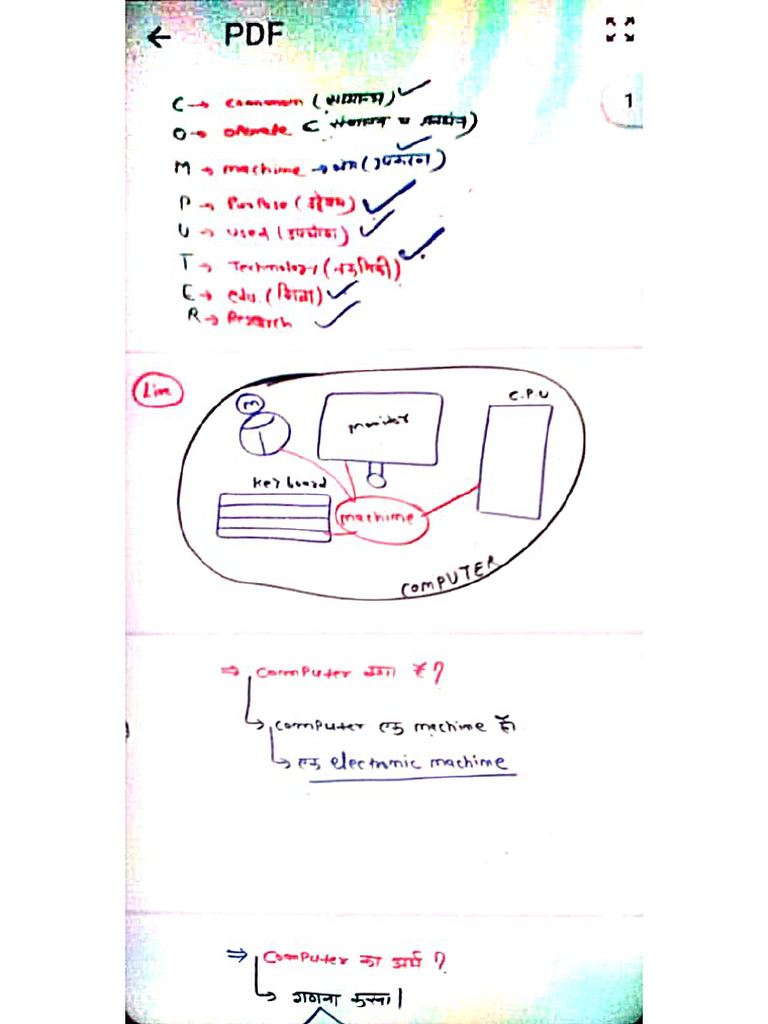 PDF
1
C → common (सामान्य)
O → operate (संचालन व
M → machime → यंत्र (उपकरण)
P → Purpose (उद्देश्य)
U → used (उपयोग)
T → Technology (तकनिकी)
E → edu. (शिक्षा)
R → Research
Live
M
monitor
C.P.U
Key board
machime
COMPUTER
⇒ Computer क्या है?
↳ Computer एक machime है।
↳ एक electronic machime
⇒ Computer का अर्थ ?
↳ गणना करना।